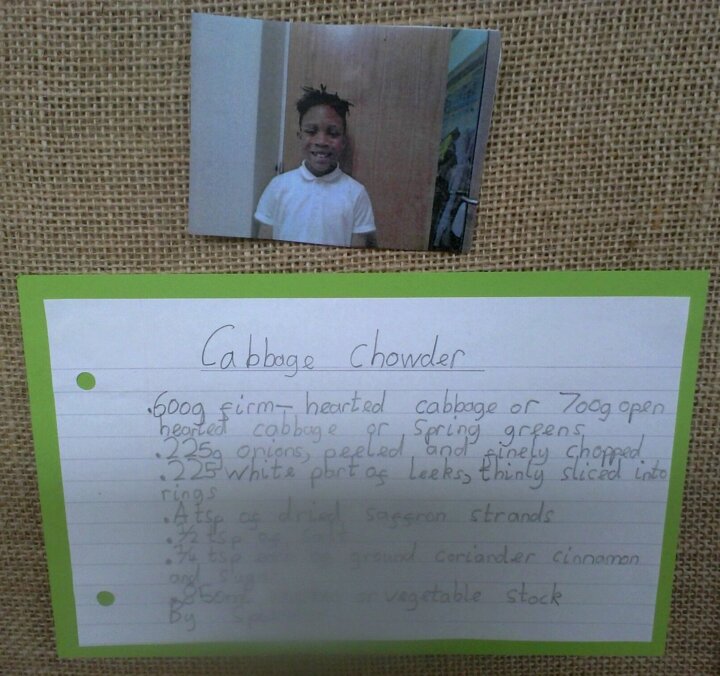 Cabbage Chowder
.600g firm- hearted cabbage or 700g open
hearted cabbage or Spring greens
.225g onions, peeled and finely chopped
.225 white part of leeks, thinly sliced into
rings
.A tsp of dried saffron strands
.½ tsp of salt
tsp of ground coriander cinnamon
and sugar
or vegetable stock
By